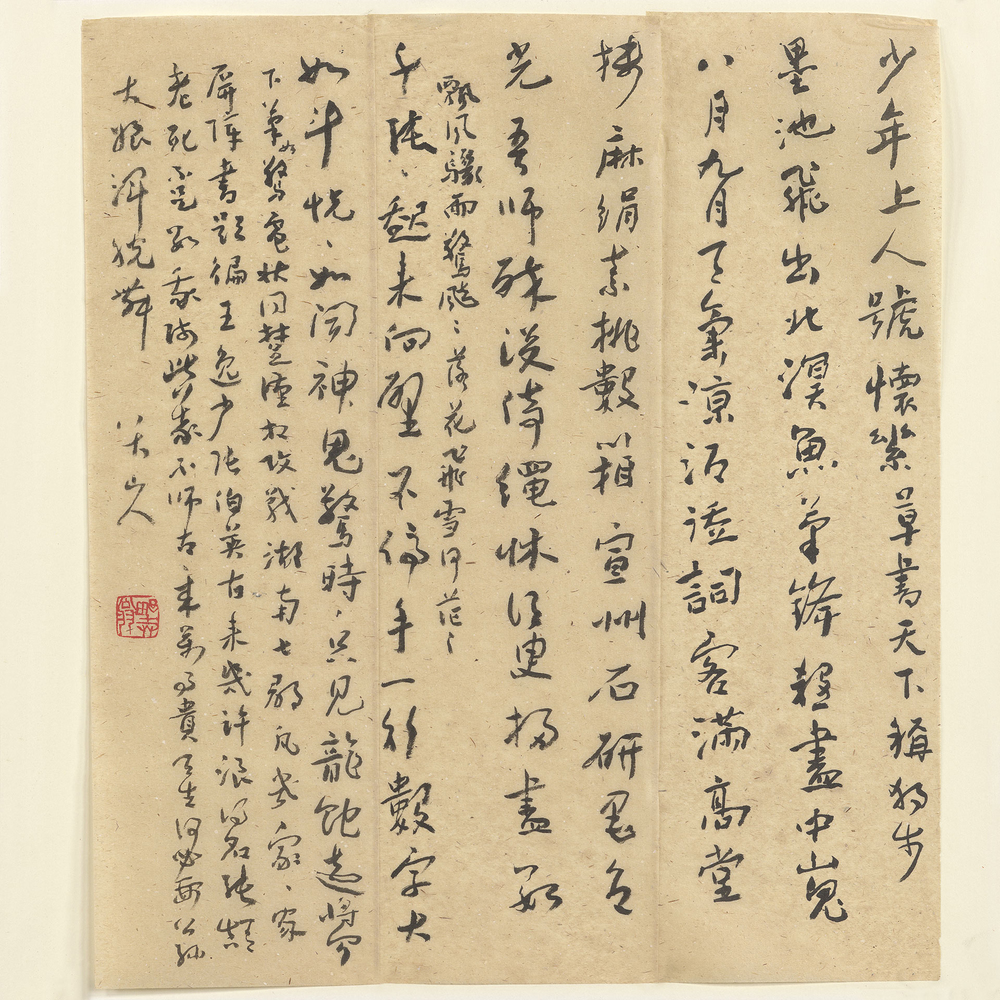 少年上人號懷素草書天下稱獨步
墨池飛出北溟魚筆鋒殺盡中山兔
八月九月天氣涼酒徒詞客滿高堂
牋麻絹素排數箱宣州石硯墨色
光吾師醉後倚繩牀須臾掃盡數
飄風驟雨驚颯々落花飛雪何茫々
千張々起來向壁不停手一行數字大
如斗恍々如聞神鬼驚時々只見龍蛇走
下筆如驚電狀同楚漢相攻戰湖南七郡凡幾家々家
屏障書題徧王逸少張伯英古來幾許浪得名張顛
老死不足數我師此義不師古來萬事貴天生何必要公孫
大娘渾脫舞 八大山人